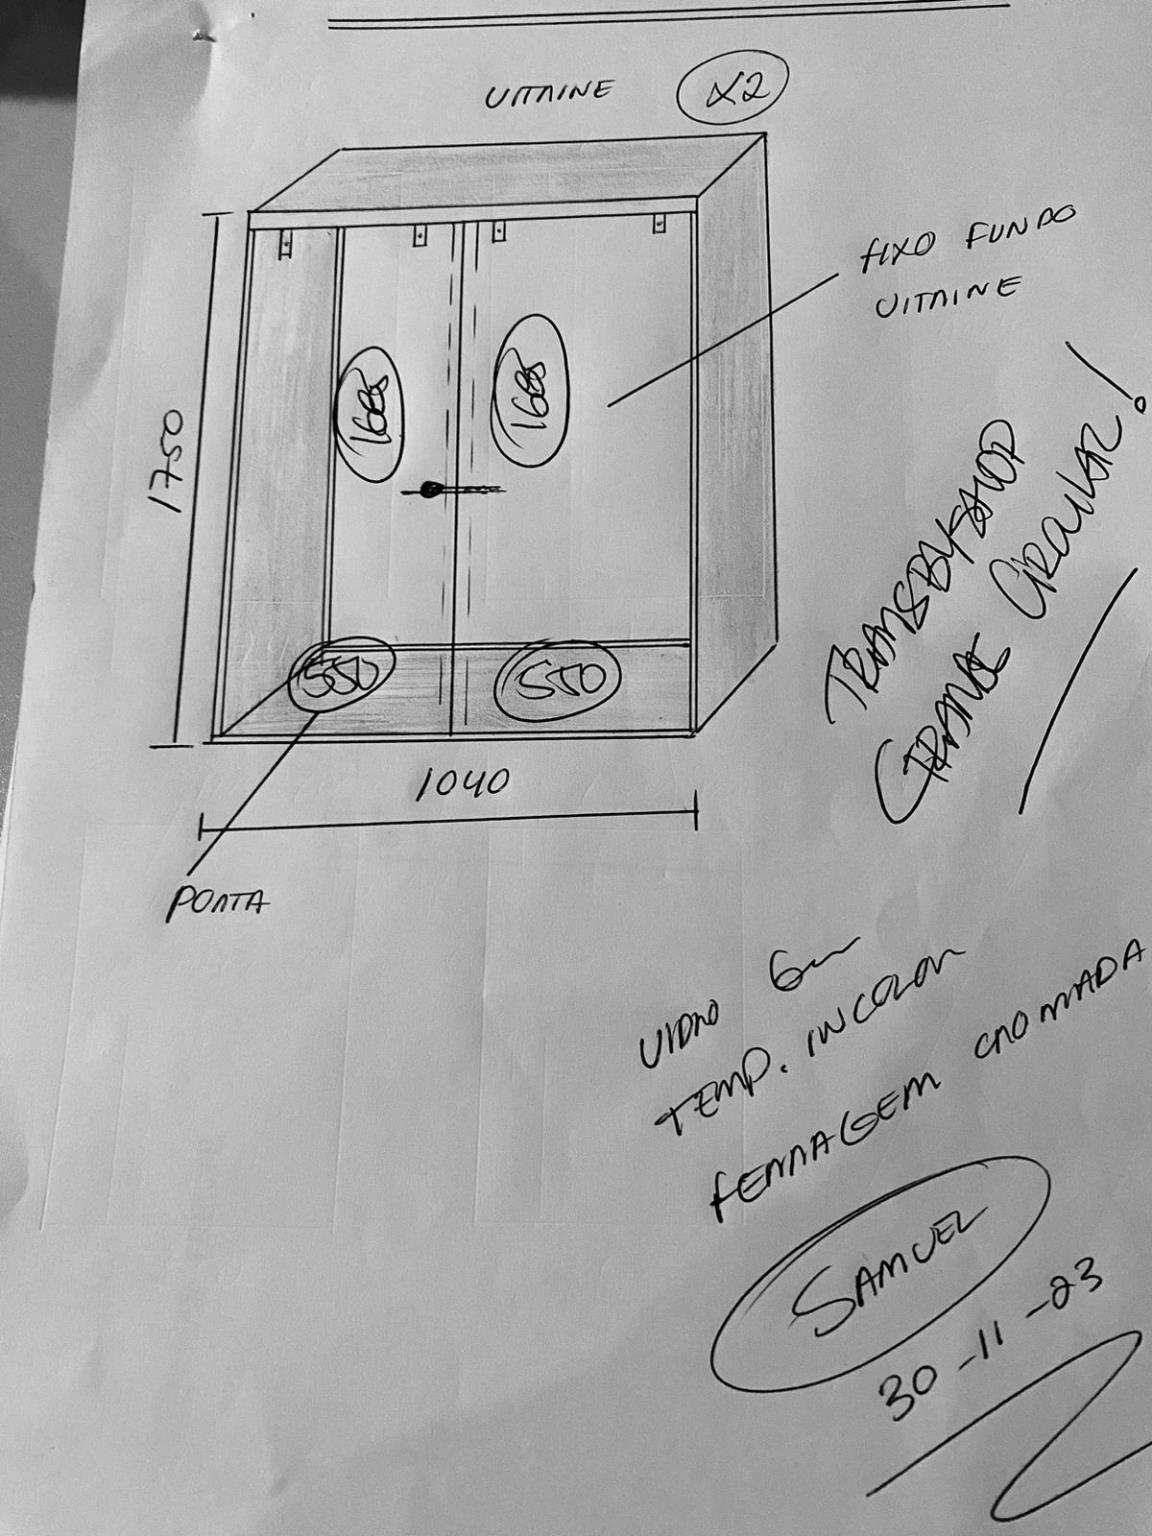 VITRINE X2
FIXO FUNDO
VITRINE
1750
1685
1685
550
550
1040
PORTA
GRANDE CIRCULAR!
VIDRO 6mm
TEMP. INCOLOR
FERRAGEM CROMADA
SAMUEL
30-11-23